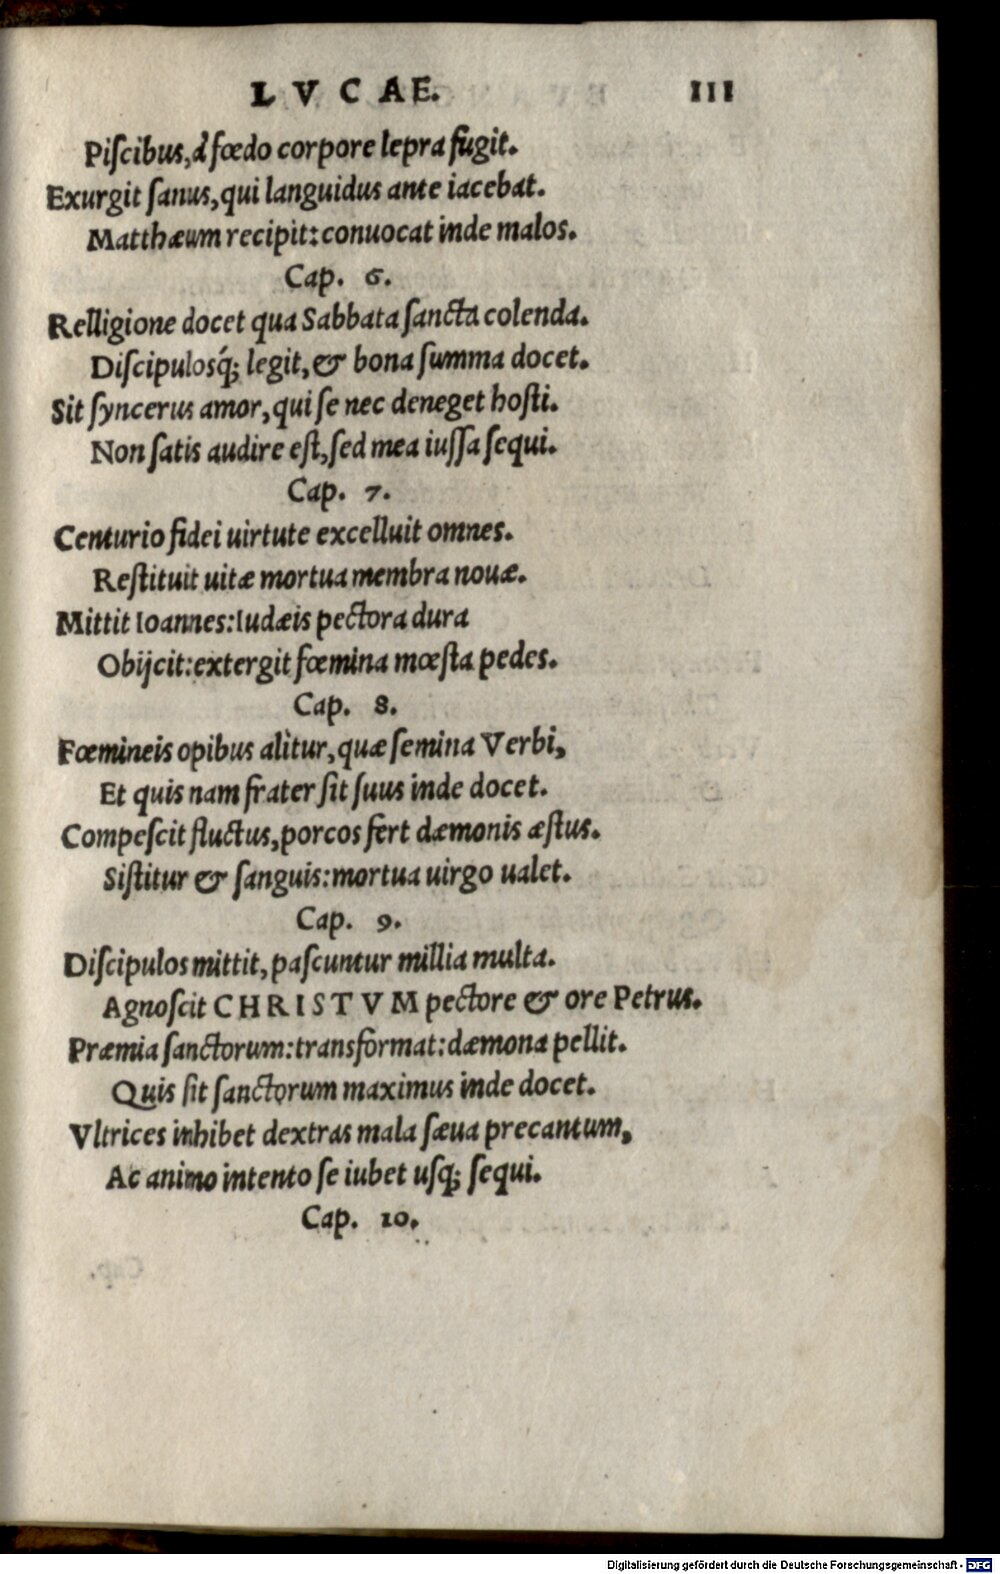 LVCAE. III
Piſcibus, à fœdo corpore lepra fugit.
Exurgit ſanus, qui languidus ante iacebat.
Matthæum recipit: conuocat inde malos.
Cap. 6.
Relligione docet qua Sabbata ſancta colenda.
Diſcipulosq́; legit, & bona ſumma docet.
Sit ſyncerus amor, qui ſe nec deneget hoſti.
Non ſatis audire eſt, ſed mea iuſſa ſequi.
Cap. 7.
Centurio fidei uirtute excelluit omnes.
Reſtituit uitæ mortua membra nouæ.
Mittit Ioannes: Iudæis pectora dura
Obijcit: extergit fœmina mœſta pedes.
Cap. 8.
Fœmineis opibus alitur, quæ ſemina Verbi,
Et quis nam frater ſit ſuus inde docet.
Compeſcit fluctus, porcos fert dæmonis æſtus.
Siſtitur & ſanguis: mortua uirgo ualet.
Cap. 9.
Diſcipulos mittit, paſcuntur millia multa.
Agnoſcit CHRISTVM pectore & ore Petrus.
Præmia ſanctorum: transformat: dæmona pellit.
Quis ſit ſanctorum maximus inde docet.
Vltrices inhibet dextras mala ſæua precantum,
Ac animo intento ſe iubet uſq; ſequi.
Cap. 10.
Digitalisierung gefördert durch die Deutsche Forschungsgemeinschaft - DFG